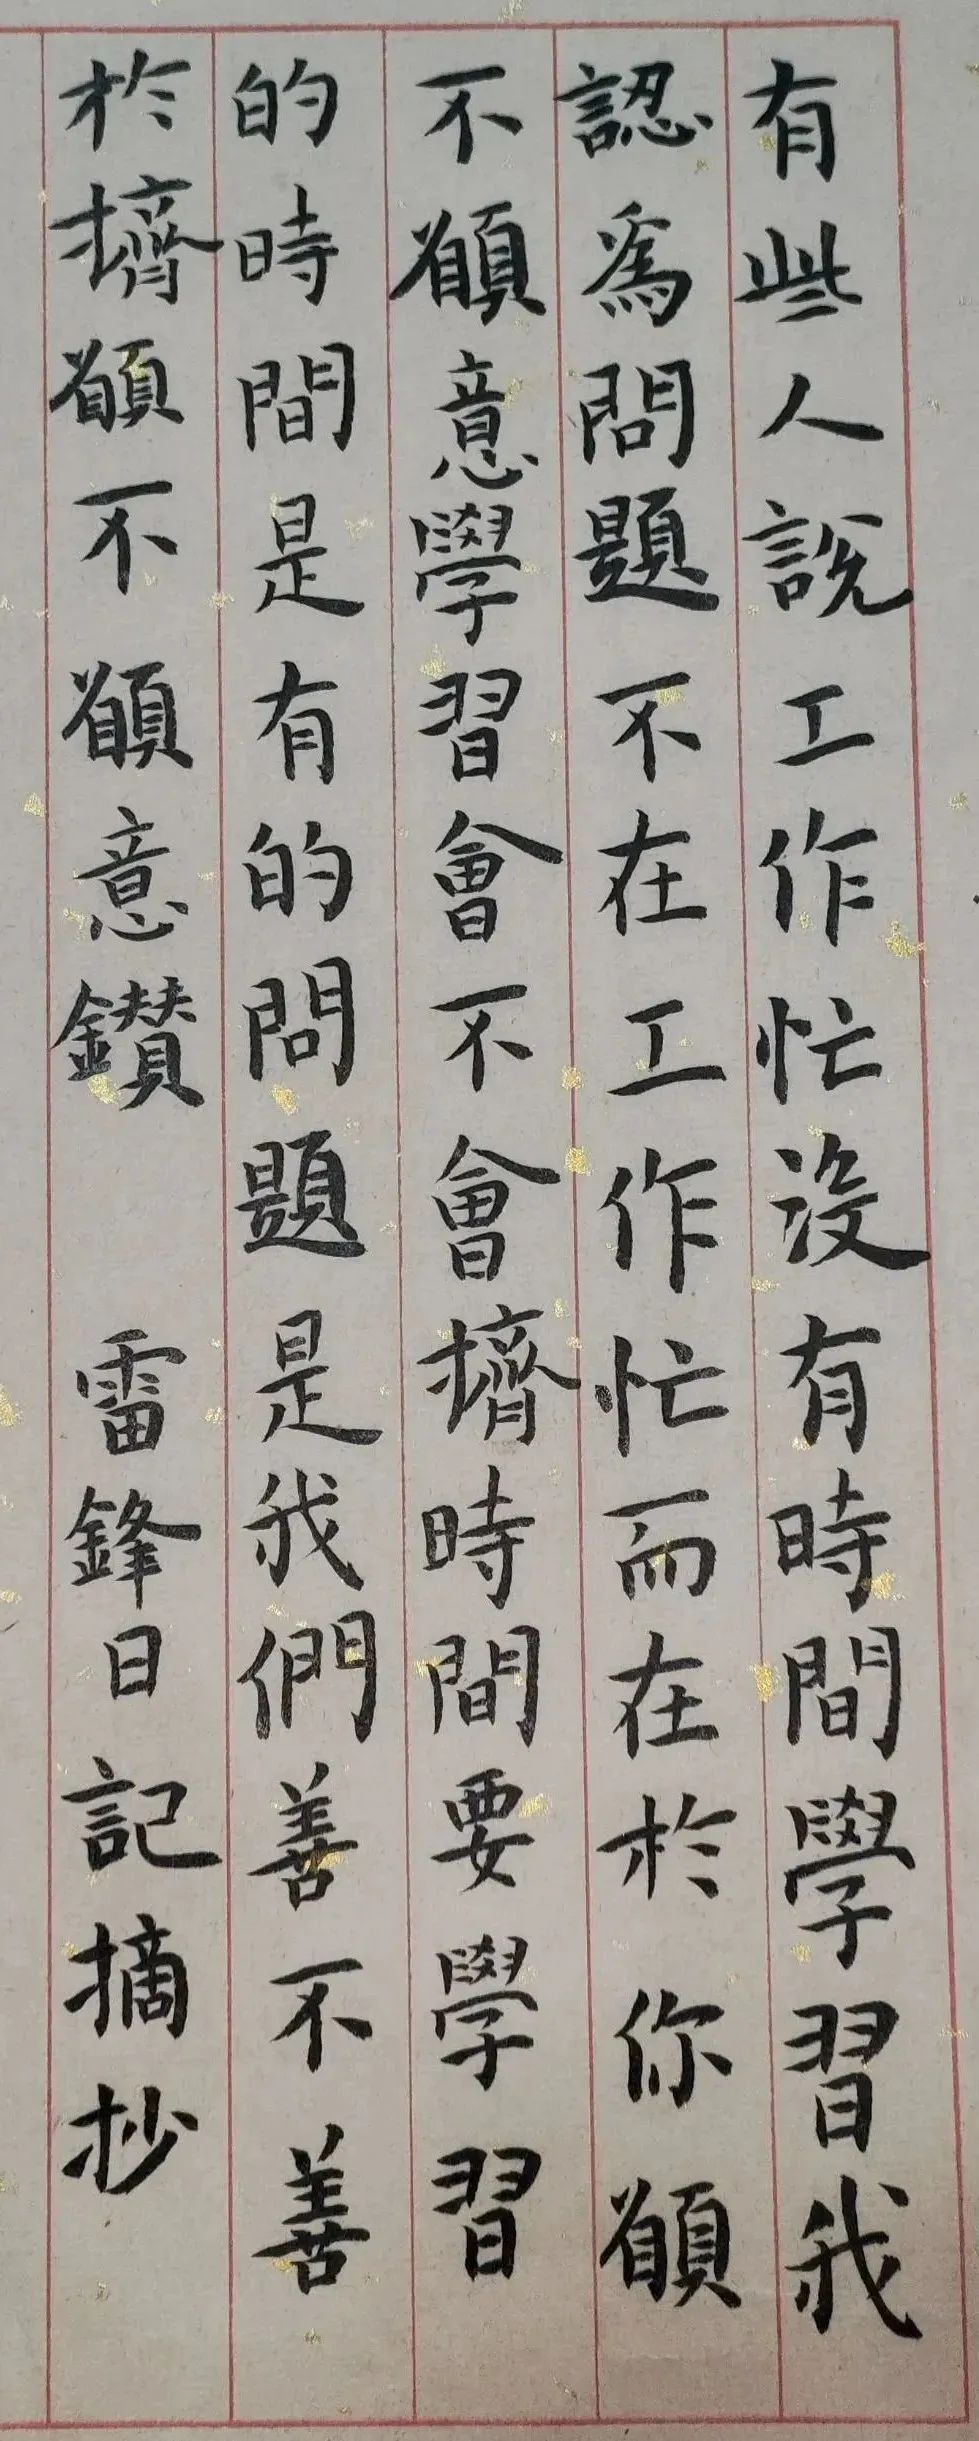 有些人說工作忙沒有時間學習我
認爲問題不在工作忙而在於你願
不願意學習會不會擠時間要學習
的時間是有的問題是我們善不善
於擠願不願意鑽 雷鋒日記摘抄